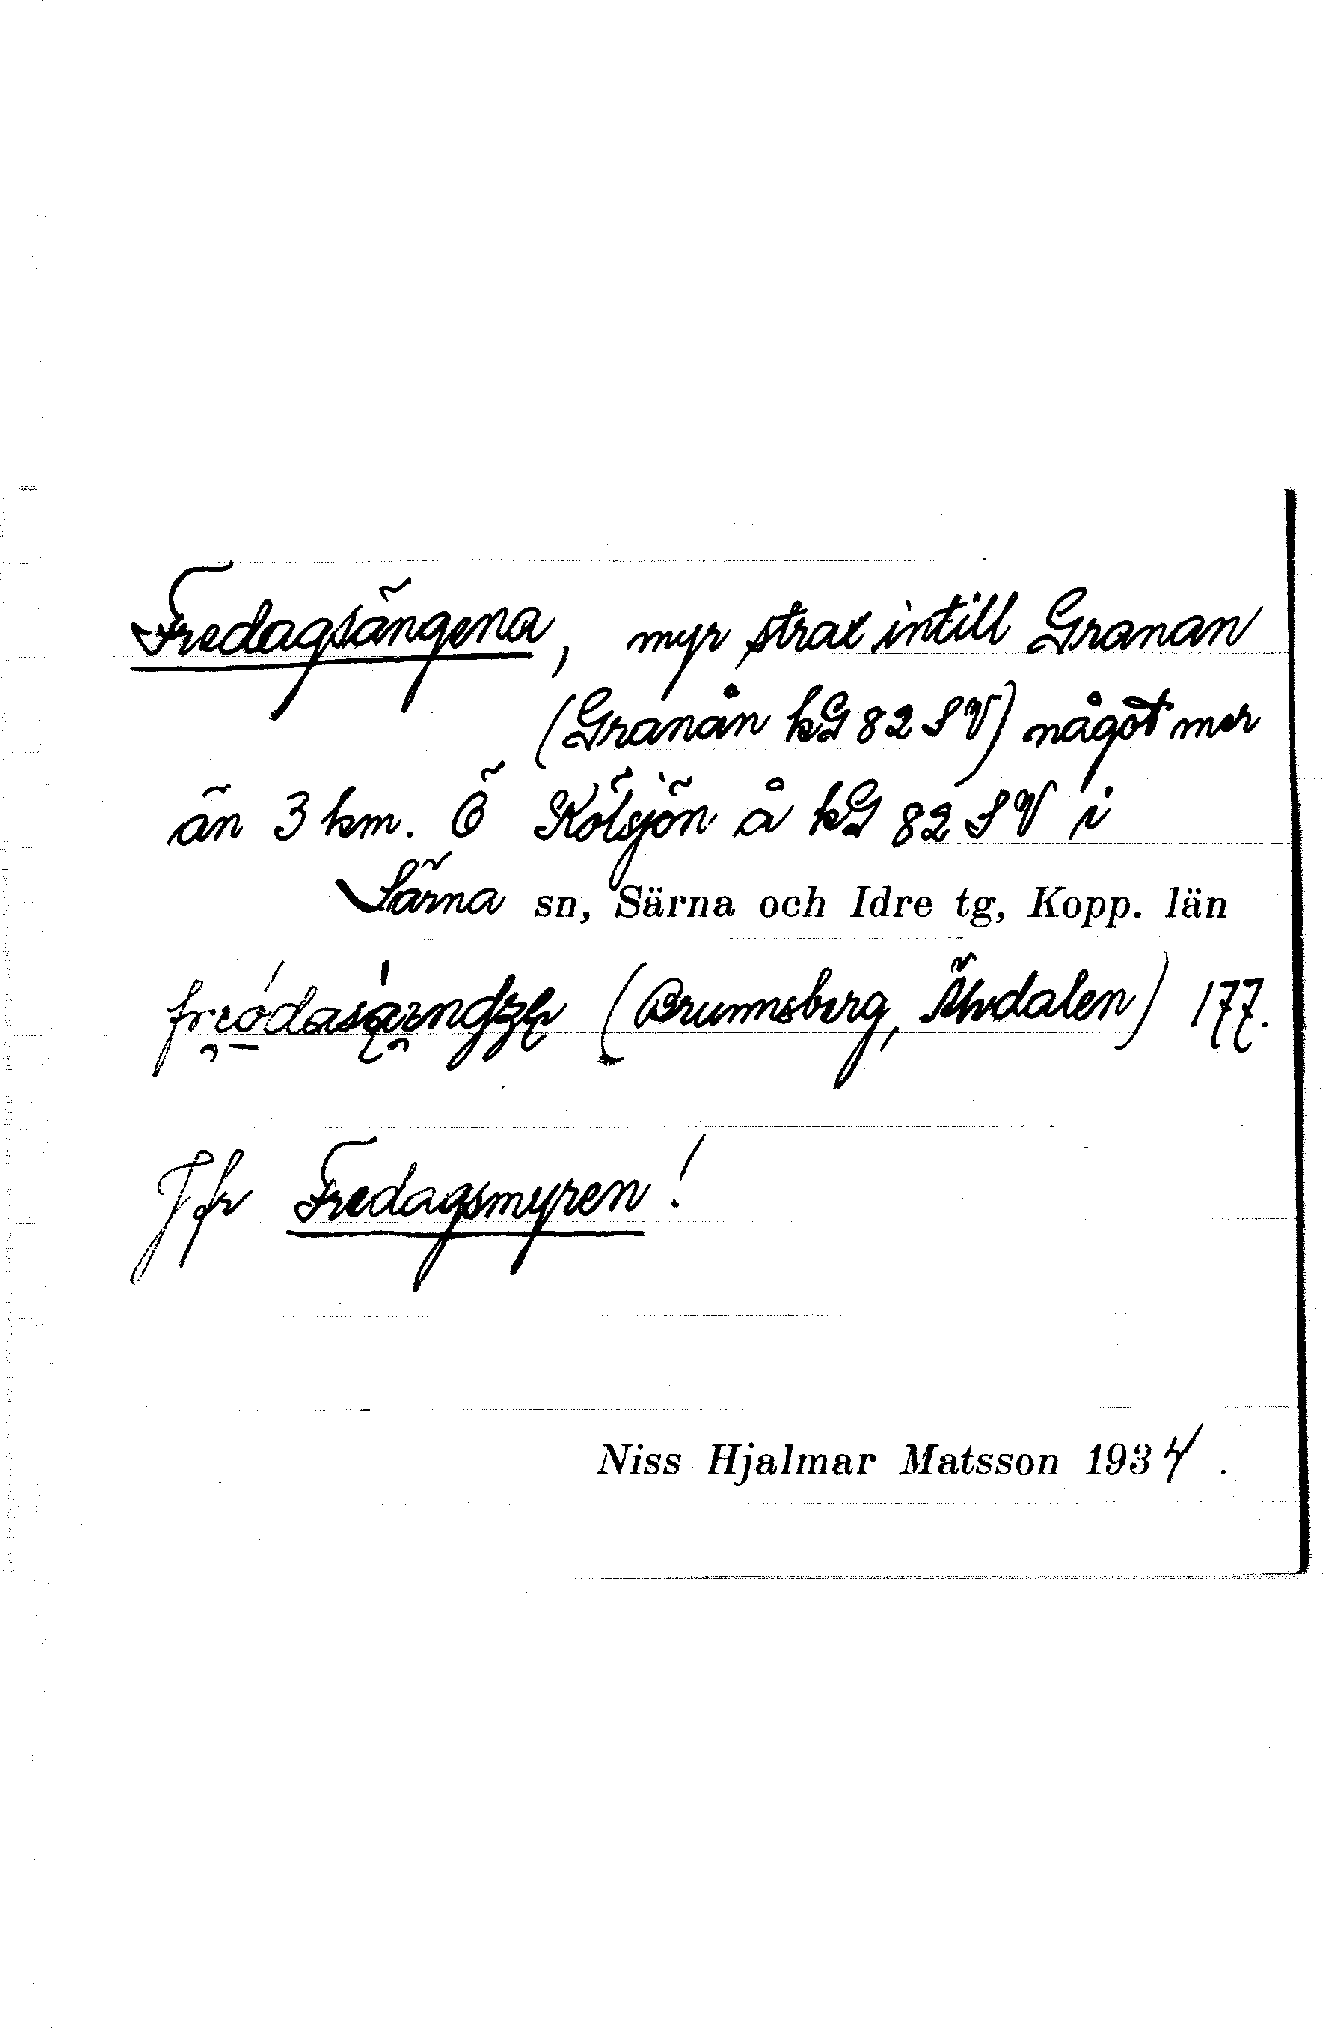 Fredagsängena, myr strax intill Granan
(Granån kG 82 SV) något mer
än 3 km. Ö Kölsjön å kG 82 SV i
Särna sn, Särna och Idre tg, Kopp. län
(Brunnsberg, Älvdalen) 177.
Jfr Fredagsmyren!
Niss Hjalmar Matsson 1934.